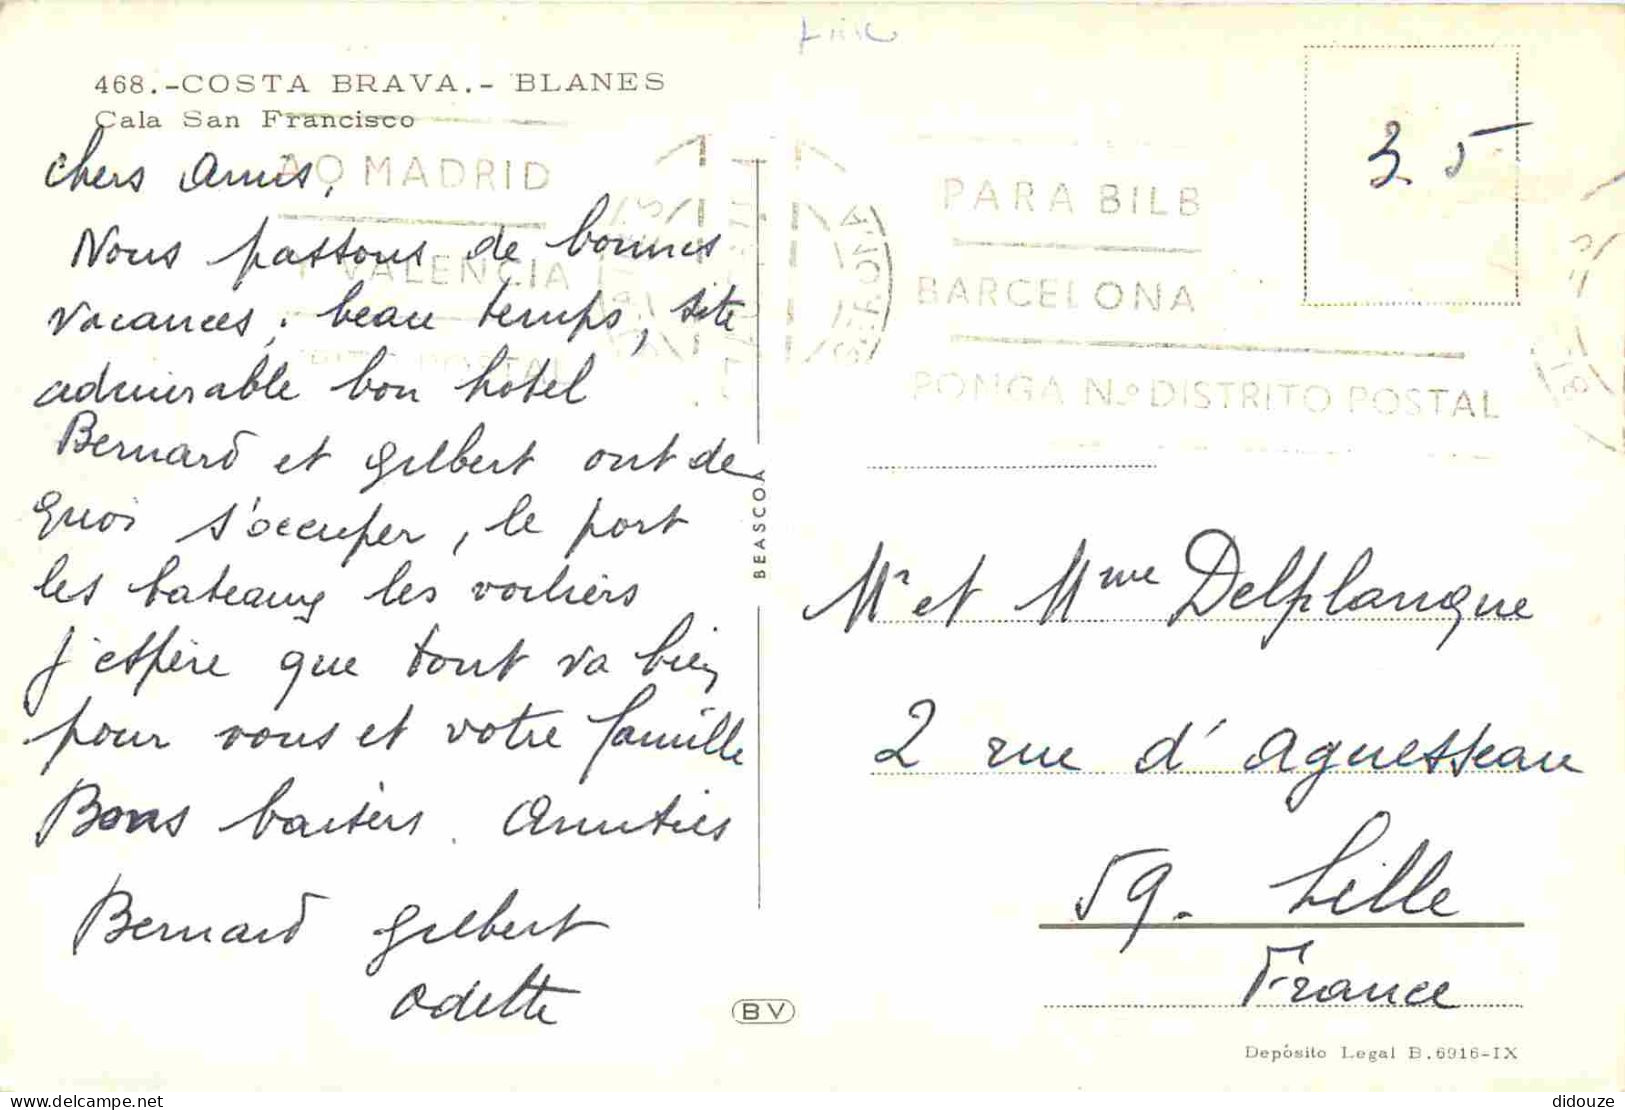 468.-COSTA BRAVA.- BLANES
Cala San Francisco
chers Amis,
Nous passons de bonnes
vacances. beau temps, site
admirable bon hotel
Bernard et Gilbert ont de
quoi s'occuper, le port
les bateaux les voiliers
J'espère que tout va bien
pour vous et votre famille
Bons baisers. Amitiés
Bernard Gilbert
Odette
AO MADRID
VALENCIA
POSTAL
BEASCOA
BV
35
PARA BILB
BARCELONA
PONGA N.º DISTRITO POSTAL
GERONA
Mr et Mme Delplanque
2 rue d'Aguesseau
59. Lille
France
Depósito Legal B.6916-IX
delcampe.net
didouze